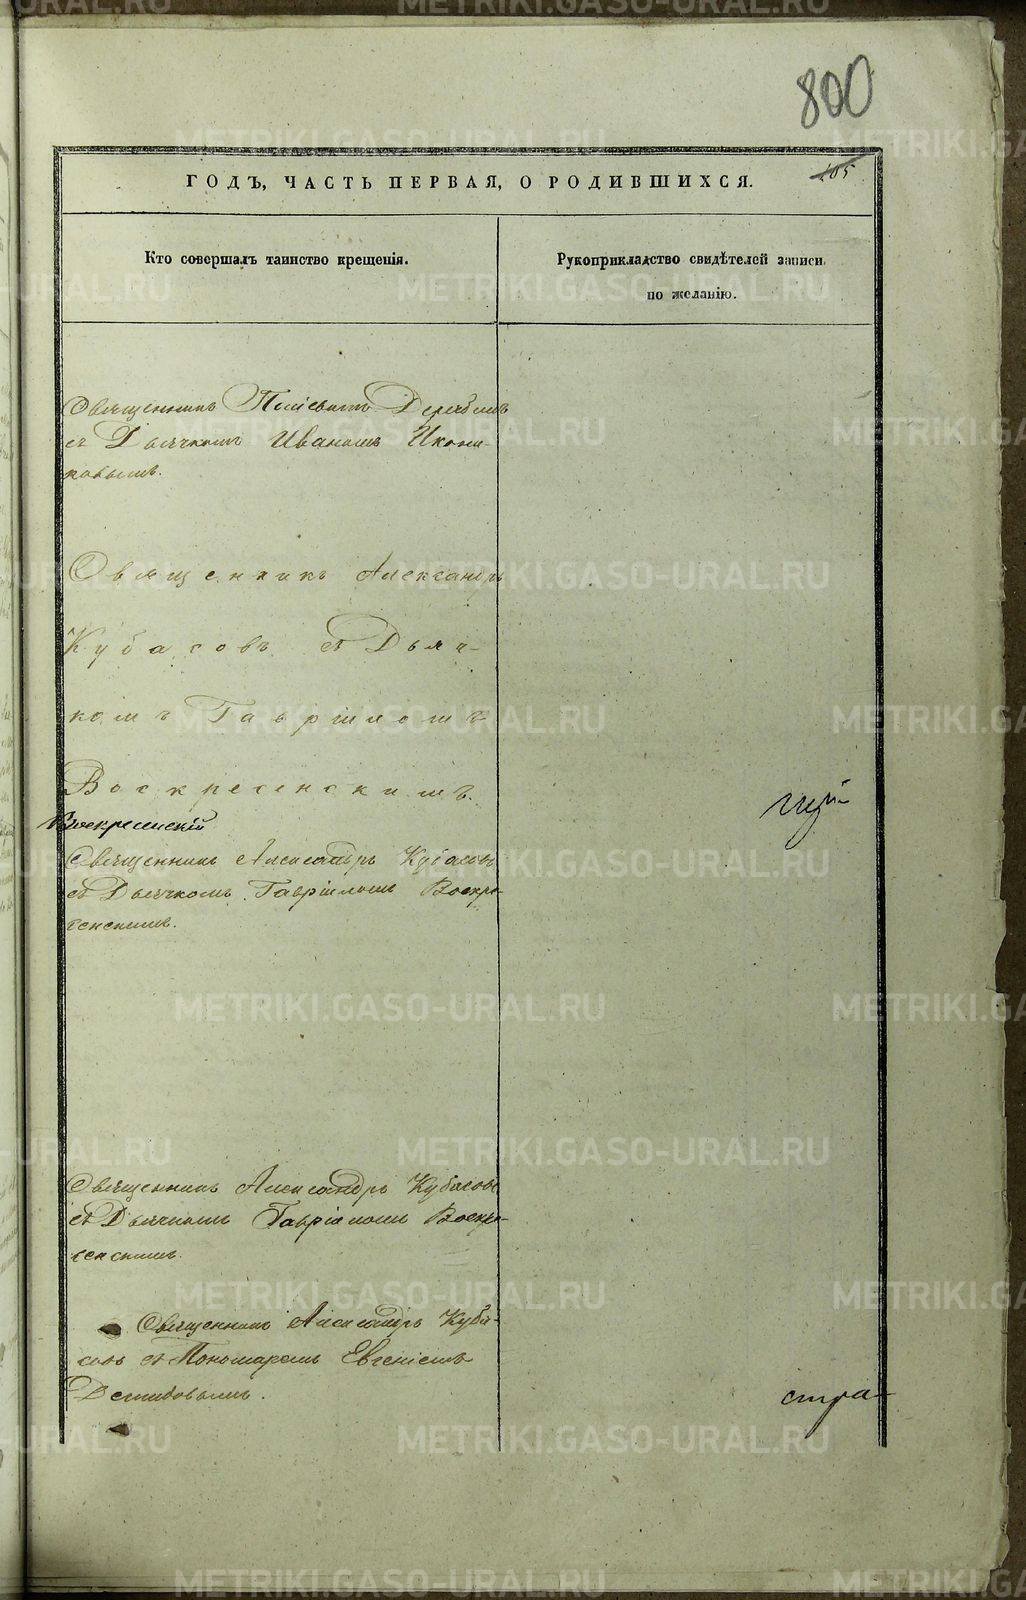 800
105
ГОДЪ, ЧАСТЬ ПЕРВАЯ, О РОДИВШИХСЯ.
Кто совершалъ таинство крещенія.
Рукоприкладство свидѣтелей записи
по желанію.
Священникъ Дерябинъ
съ Дьячкомъ Иваномъ Икони-
ковымъ.
Священникъ Александръ
Кубасовъ съ Дьяч-
комъ Гавріиломъ
Воскресенскимъ.
Воскресенскій
Священникъ Александръ Кубасовъ
съ Дьячкомъ Гавріиломъ Воскре-
сенскимъ.
Священникъ Александръ Кубасовъ
съ Дьячкомъ Гавріиломъ Воскре-
сенскимъ.
Священникъ Александръ Куба-
совъ съ Пономаремъ Евгеніемъ
Демидовымъ.
стра-
METRIKI.GASO-URAL.RU